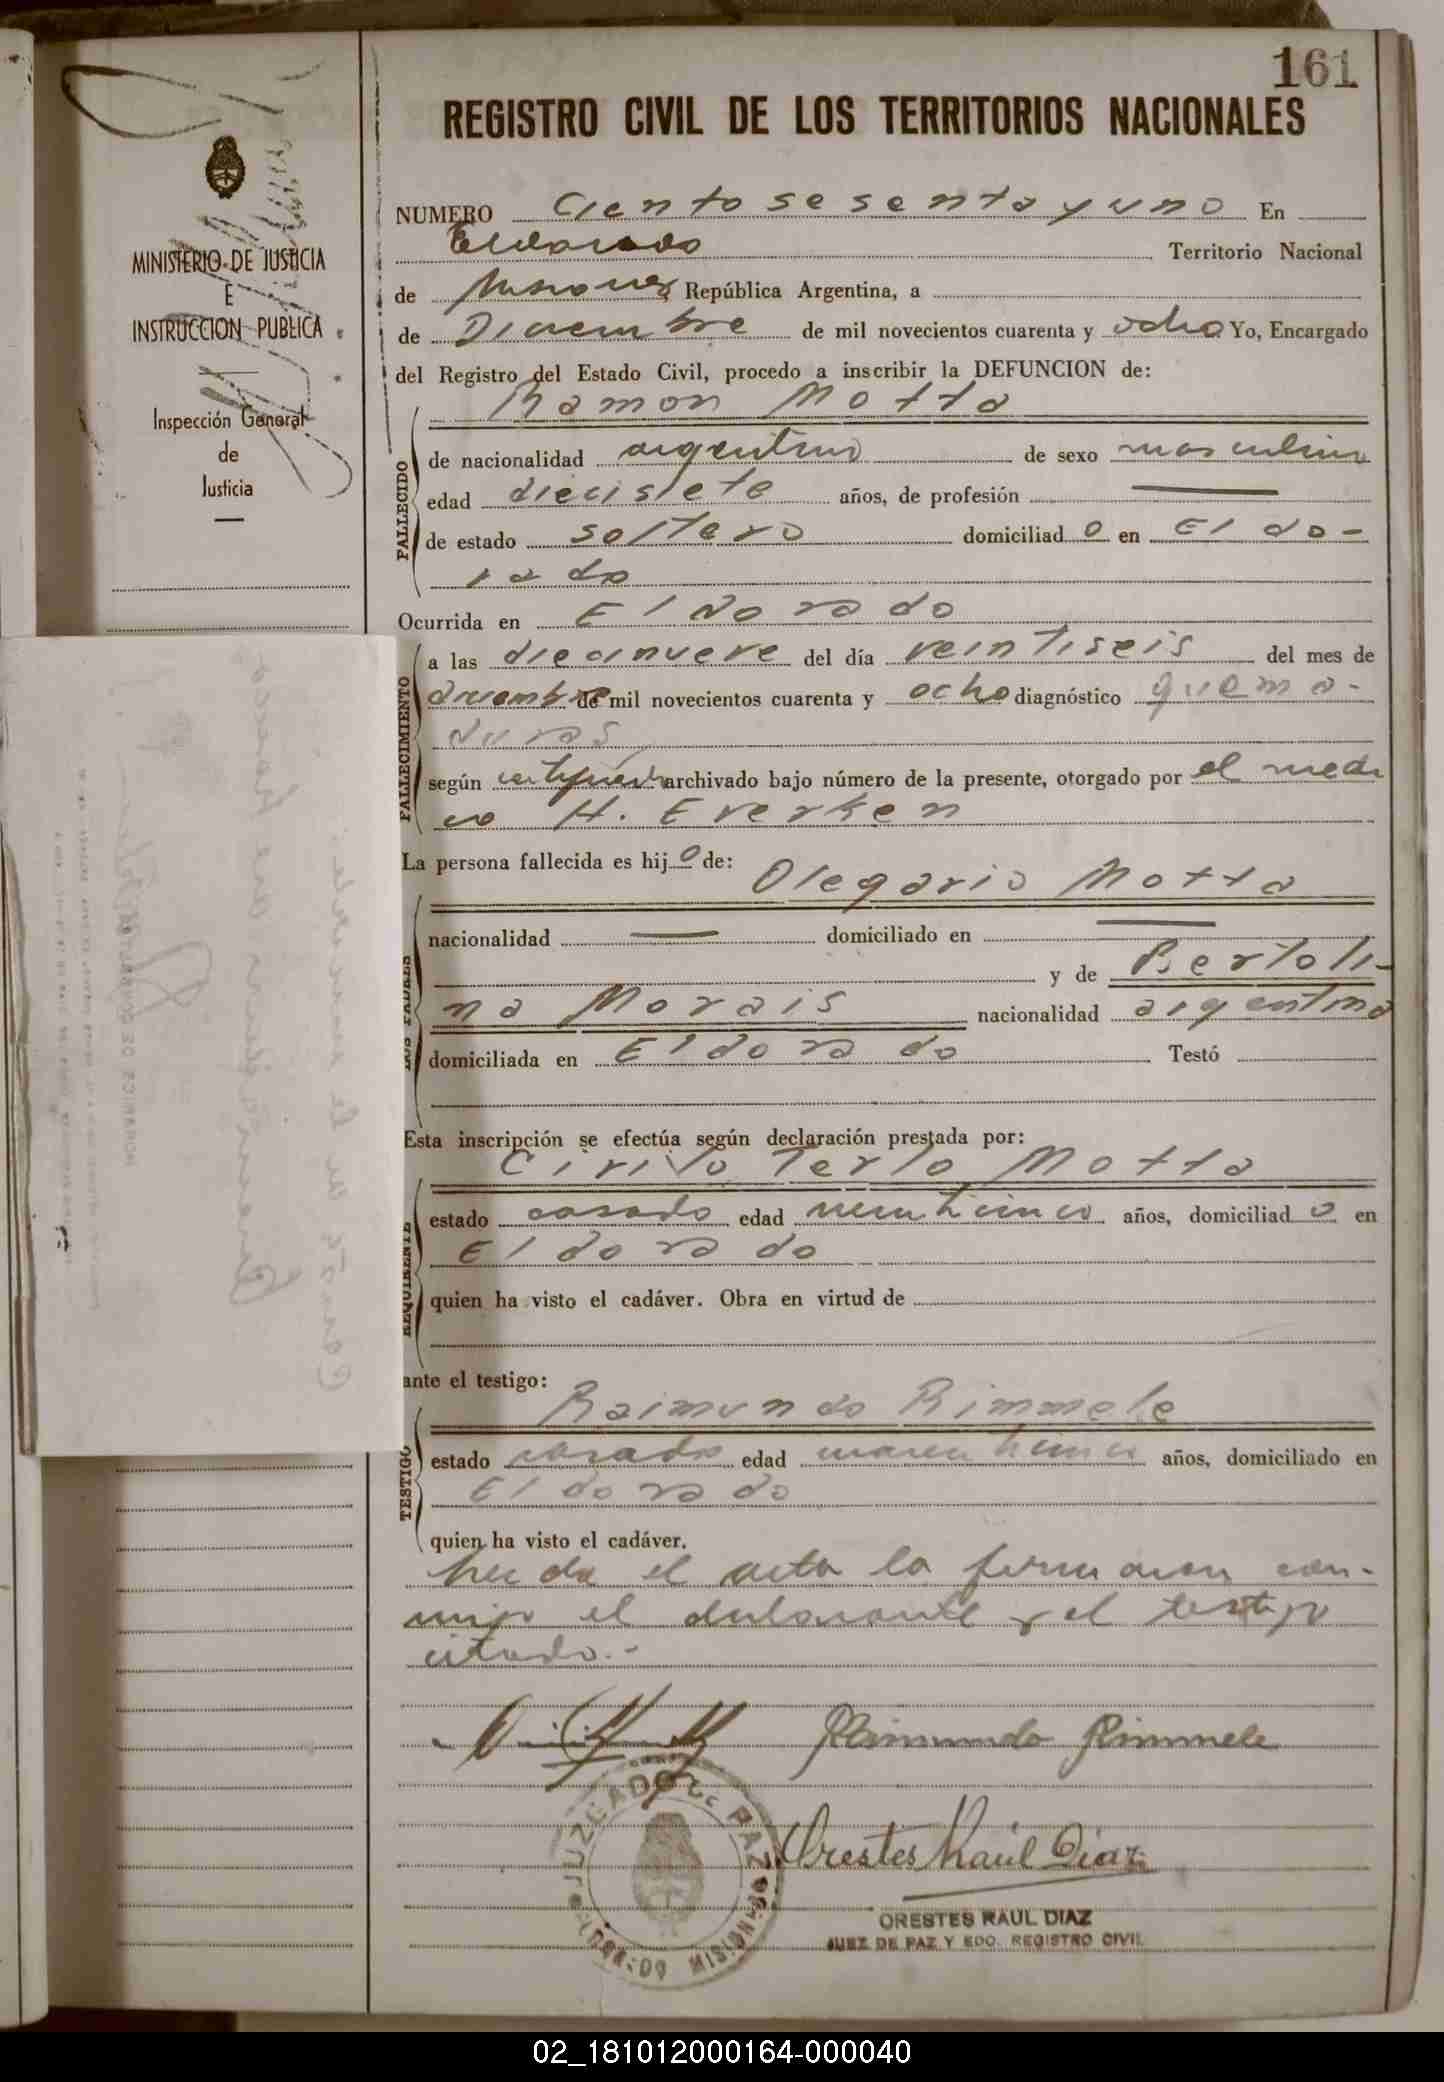 161
REGISTRO CIVIL DE LOS TERRITORIOS NACIONALES
MINISTERIO DE JUSTICIA
E
INSTRUCCION PUBLICA
Inspección General
de
Justicia
NUMERO Ciento sesenta y uno En
Eldorado Territorio Nacional
de Misiones República Argentina, a
de Diciembre de mil novecientos cuarenta y ocho Yo, Encargado
del Registro del Estado Civil, procedo a inscribir la DEFUNCION de:
Ramon Motta
FALLECIDO
de nacionalidad argentino de sexo masculino
edad diecisiete años, de profesión —
de estado soltero domiciliado en Eldo-
rado
Ocurrida en Eldorado
FALLECIMIENTO
a las diecinueve del día veintiseis del mes de
diciembre de mil novecientos cuarenta y ocho diagnóstico quema-
duras
según certificado archivado bajo número de la presente, otorgado por el medi
co H. Everken
La persona fallecida es hijo de:
Olegario Motta
LOS PADRES
nacionalidad — domiciliado en —
y de Bertoli-
na Morais nacionalidad argentina
domiciliada en Eldorado Testó
Esta inscripción se efectúa según declaración prestada por:
Cirilo Terlo Motta
REQUIRENTE
estado casado edad veinticinco años, domiciliado en
Eldorado
quien ha visto el cadáver. Obra en virtud de
ante el testigo:
Raimundo Rimmele
TESTIGO
estado casado edad años, domiciliado en
Eldorado
quien ha visto el cadáver.
leida el acta la firmaron con-
migo el declarante y el testigo
citado.-
Raimundo Rimmele
JUZGADO DE PAZ
ELDORADO MISIONES
Orestes Raúl Diaz
ORESTES RAUL DIAZ
JUEZ DE PAZ Y EDO. REGISTRO CIVIL
02_181012000164-000040